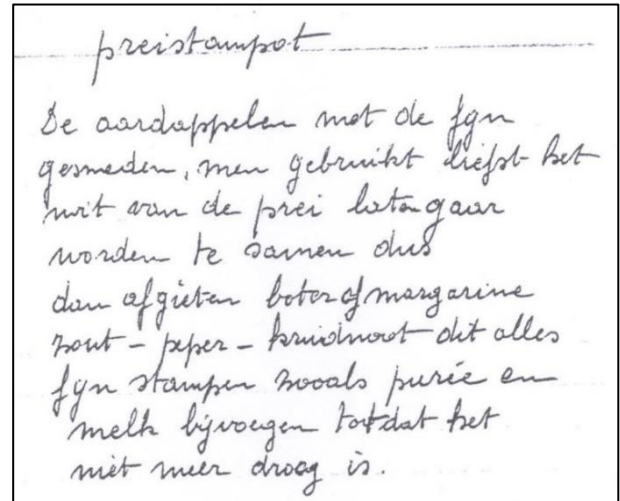 preistampot
De aardappelen met de fyn
gesneden, men gebruikt liefst het
wit van de prei laten gaar
worden te samen dus
dan afgieten boter of margarine
zout - peper - kruidnoot dit alles
fyn stampen zooals purée en
melk bijvoegen totdat het
niet meer droog is.